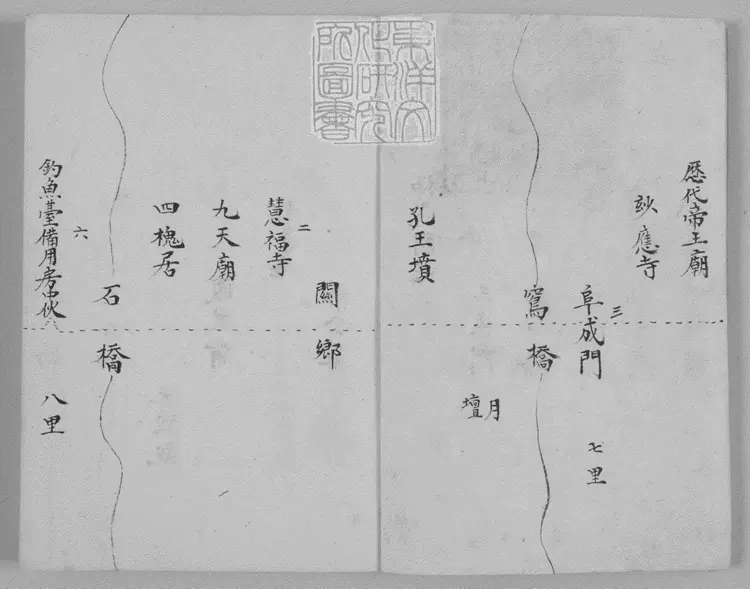 歷代帝王廟
玅應寺
三
阜成門
七里
窵橋
月壇
孔王墳
東洋文
化研究
所圖書
關鄉
二
慧福寺
九天廟
四槐居
石橋
六
釣魚臺備用房中伙
八里